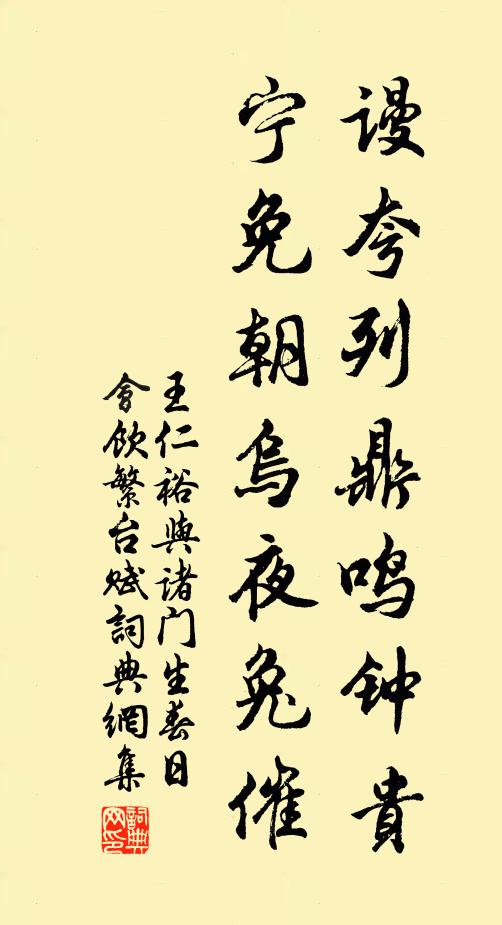 谩夸列鼎鸣钟贵
宁免朝乌夜兔催
王仁裕與诸门生春日
會饮繁台赋詞典網集
詞典網印